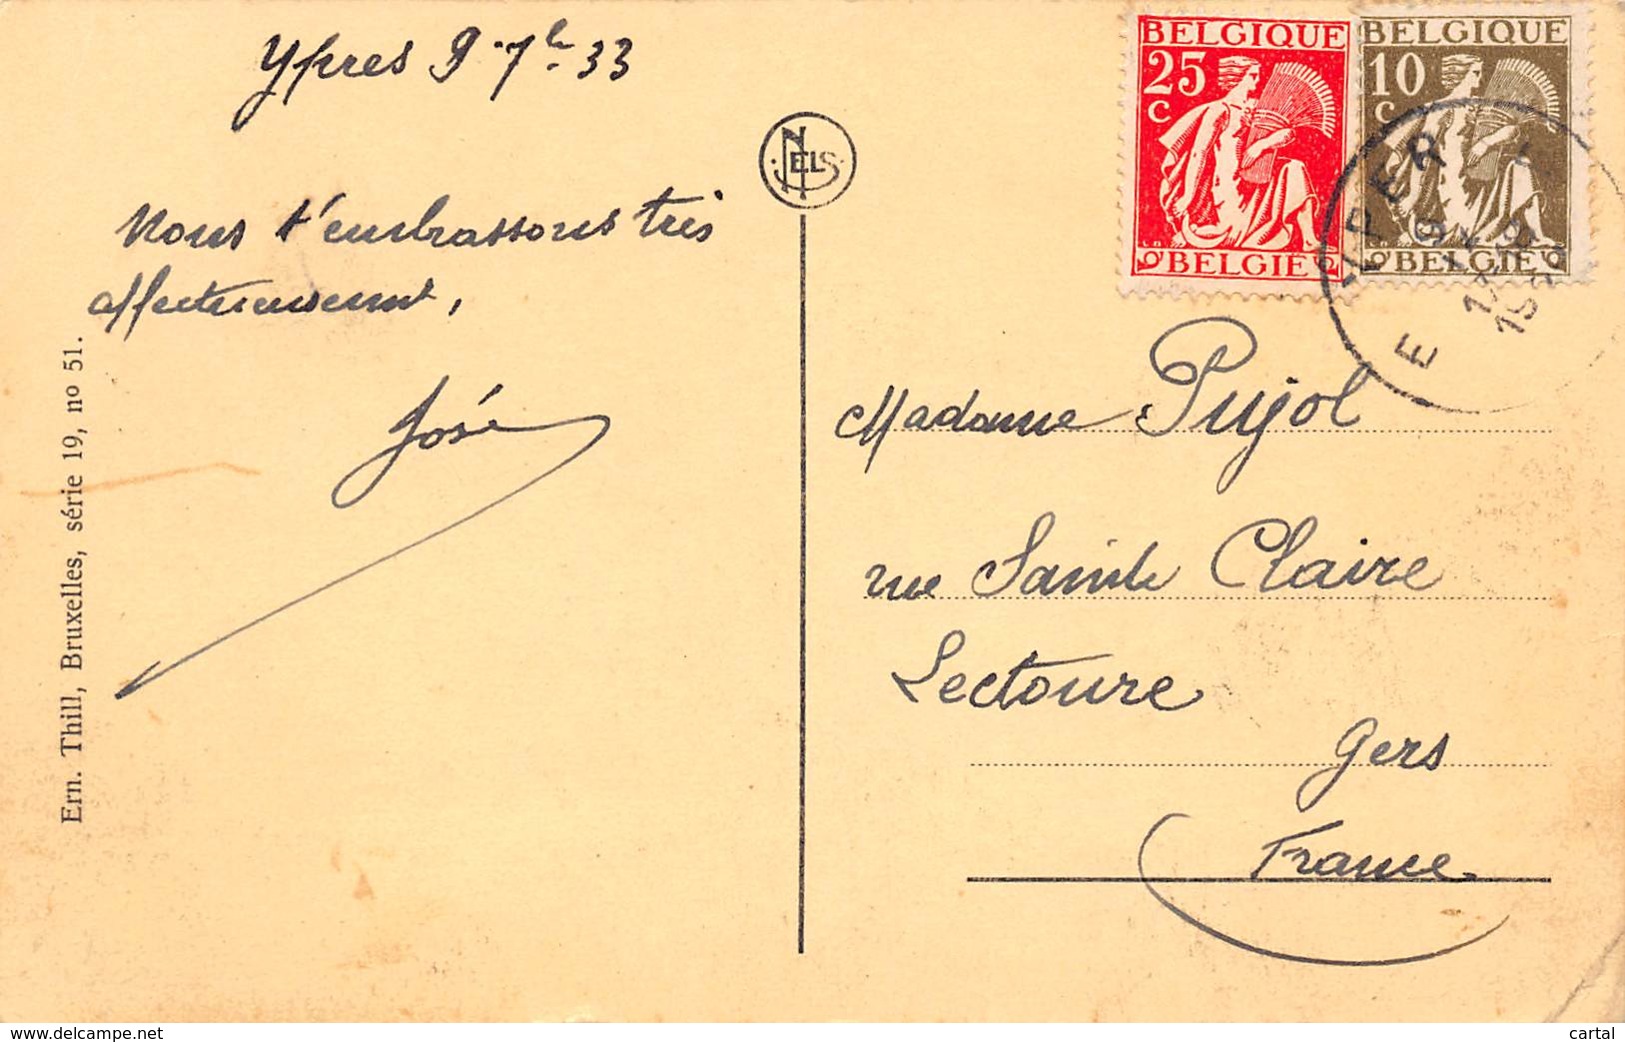 Ypres 9-7bre 33
Nous t'embrassons très
affectueusement,
José
Ern. Thill, Bruxelles, série 19, nº 51.
NELS
BELGIQUE
25
C
BELGIË
BELGIQUE
10
C
BELGIË
IEPER
E
Madame Pujol
rue Sainte Claire
Lectoure
Gers
France
delcampe.net
cartal